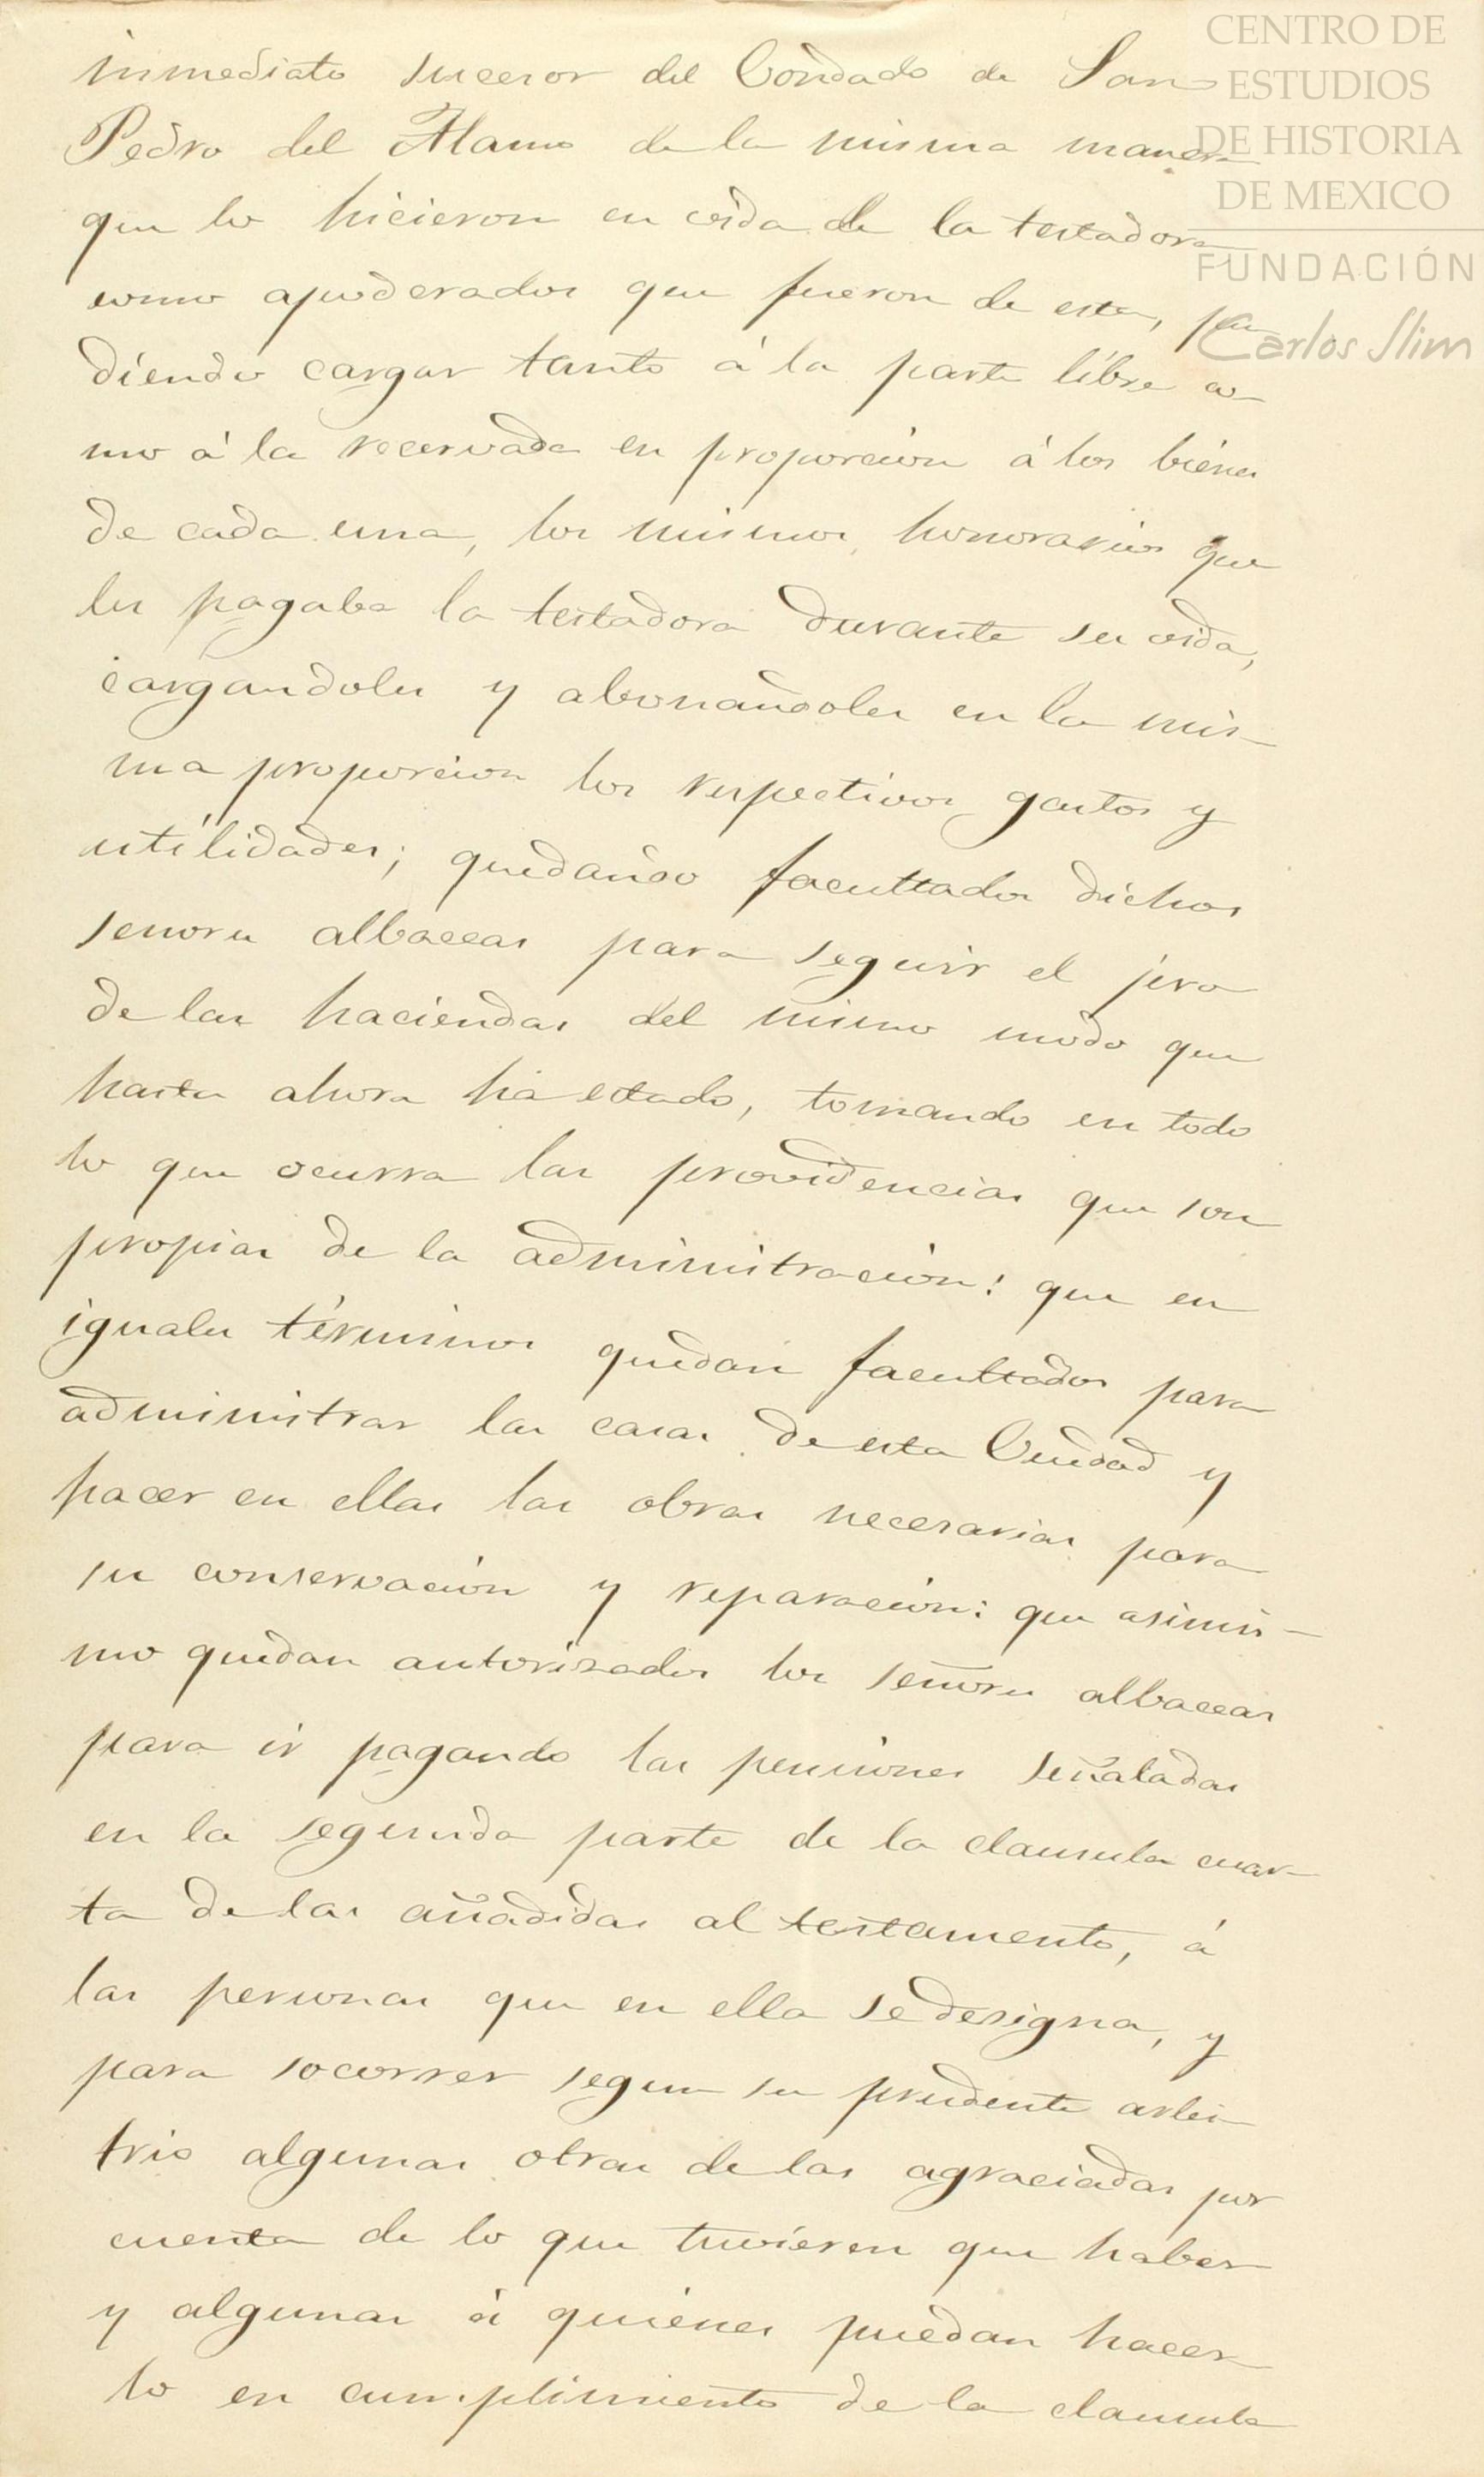 inmediato sucesor del Condado de San
Pedro del Alamo de la misma manera
que lo hicieron en vida de la testadora
como apoderados que fueron de esta, pu
diendo cargar tanto á la parte libre co-
mo á la recervada en proporcion á los bienes
de cada una, los mismos honorarios que
les pagaba la testadora durante su vida,
cargandoles y abonandoles en la mis-
ma proporcion los respectivos gastos y
utilidades; quedando facultados dichos
señores albaceas para seguir el jiro
de las haciendas del mismo modo que
hasta ahora ha estado, tomando en todo
lo que ocurra las providencias que son
propias de la administracion: que en
iguales términos quedan facultados para
administrar las casas de esta Ciudad y
hacer en ellas las obras necesarias para
su conservacion y reparacion: que asimis-
mo quedan autorizados los señores albaceas
para ir pagando las pensiones señaladas
en la segunda parte de la clausula cuar-
ta de las añadidas al testamento, á
las personas que en ella se designa, y
para socorrer segun su prudente arbi-
trio algunas otras de las agraciadas por
cuenta de lo que tuvieren que haber
y algunas á quienes puedan hacer
lo en cumplimiento de la clausula
CENTRO DE
ESTUDIOS
DE HISTORIA
DE MEXICO
FUNDACIÓN
Carlos Slim